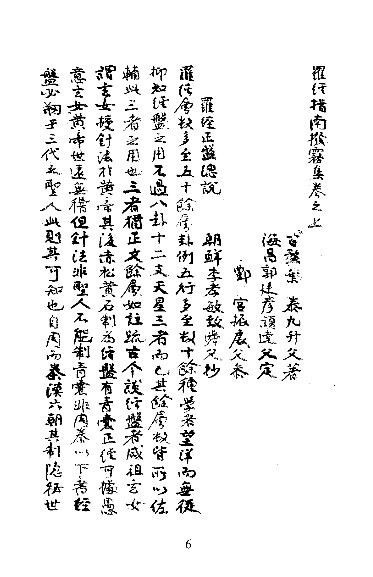 羅經指南撥霧集卷之上
葉泰九升父著
海昌郭廷彥碩達父定
鄭宮振宸父參
朝鮮李孝敏父抄
羅經正盤總說
羅經層數多至五十餘層卦例五行多至數十餘種學者望洋而無從
抑知經盤之用不過八卦十二支天星三者而已其餘層數皆所以佐
輔此三者之用也三者猶正文餘層如註疏古今談經盤者咸祖玄女
謂玄女授針法於黃帝其後赤松黃石制為經盤有青囊正經可據愚
意玄女黃帝世遠無稽但針法非聖人不能制青囊非周秦以下書經
盤必朔于三代之聖人此則其可知也自周而秦漢六朝其制隱祕世
6